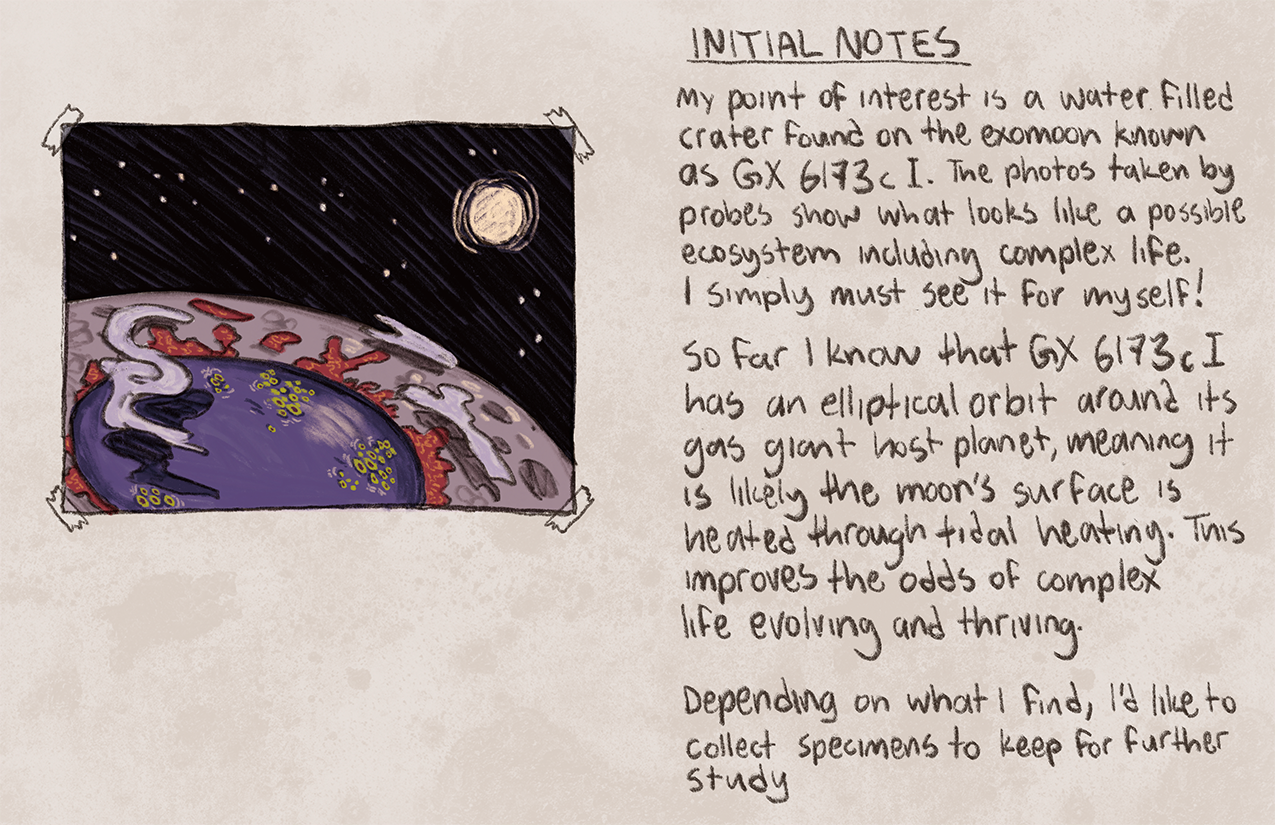 INITIAL NOTES
My point of interest is a water filled
crater found on the exomoon known
as GX 6173c I. The photos taken by
probes show what looks like a possible
ecosystem including complex life.
I simply must see it for myself!
So far I know that GX 6173c I
has an elliptical orbit around its
gas giant host planet, meaning it
is likely the moon's surface is
heated through tidal heating. This
improves the odds of complex
life evolving and thriving.
Depending on what I find, I'd like to
collect specimens to keep for further
study